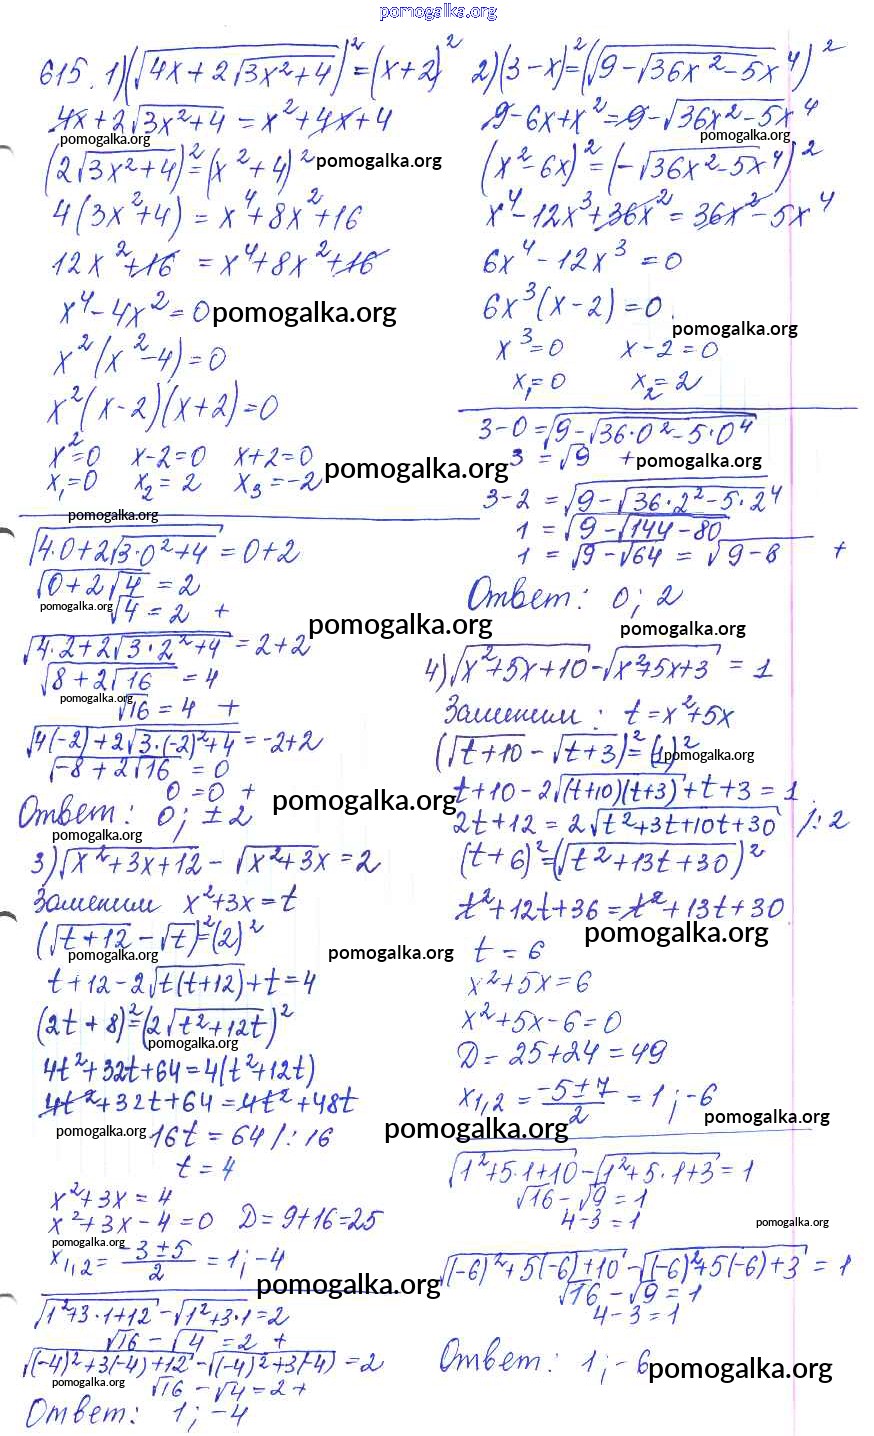 pomogalka.org
615. 1) (√(4x+2√(3x²+4)))² = (x+2)²
4x+2√(3x²+4) = x²+4x+4
pomogalka.org
(2√(3x²+4))² = (x²+4)²
pomogalka.org
4(3x²+4) = x⁴+8x²+16
12x²+16 = x⁴+8x²+16
x⁴-4x² = 0
pomogalka.org
x²(x²-4) = 0
x²(x-2)(x+2) = 0
x²=0 x-2=0 x+2=0
x₁=0 x₂=2 x₃=-2
pomogalka.org
pomogalka.org
√(4·0+2√(3·0²+4)) = 0+2
√(0+2√4) = 2
pomogalka.org
√4 = 2 +
pomogalka.org
√(4·2+2√(3·2²+4)) = 2+2
pomogalka.org
√(8+2√16) = 4
pomogalka.org
√16 = 4 +
√(4(-2)+2√(3·(-2)²+4)) = -2+2
√(-8+2√16) = 0
0=0 +
pomogalka.org
Ответ: 0; ±2
pomogalka.org
3) √(x²+3x+12) - √(x²+3x) = 2
Заменим x²+3x=t
(√(t+12) - √t)² = (2)²
pomogalka.org
pomogalka.org
t+12-2√(t(t+12))+t=4
(2t+8)² = (2√(t²+12t))²
pomogalka.org
4t²+32t+64=4(t²+12t)
4t²+32t+64=4t²+48t
pomogalka.org
16t = 64 /:16
pomogalka.org
t = 4
x²+3x = 4
x²+3x-4=0 D=9+16=25
pomogalka.org
x₁,₂ = (-3±5)/2 = 1; -4
pomogalka.org
√(1²+3·1+12) - √(1²+3·1) = 2
√16 - √4 = 2 +
√((-4)²+3(-4)+12) - √((-4)²+3(-4)) = 2
pomogalka.org
√16 - √4 = 2 +
Ответ: 1; -4
2) (3-x)² = (√(9-√(36x²-5x⁴)))²
9-6x+x² = 9-√(36x²-5x⁴)
pomogalka.org
(x²-6x)² = (-√(36x²-5x⁴))²
x⁴-12x³+36x² = 36x²-5x⁴
6x⁴-12x³ = 0
6x³(x-2)=0
pomogalka.org
x³=0 x-2=0
x₁=0 x₂=2
3-0=√(9-√(36·0²-5·0⁴))
3 = √9 +
pomogalka.org
3-2 = √(9-√(36·2²-5·2⁴))
1 = √(9-√(144-80))
1 = √(9-√64) = √(9-8) +
Ответ: 0; 2
pomogalka.org
4) √(x²+5x+10) - √(x²+5x+3) = 1
Заменим: t=x²+5x
(√(t+10) - √(t+3))² = (1)²
pomogalka.org
t+10-2√((t+10)(t+3))+t+3=1
2t+12=2√(t²+3t+10t+30) /:2
(t+6)² = (√(t²+13t+30))²
t²+12t+36=t²+13t+30
pomogalka.org
t = 6
x²+5x=6
x²+5x-6=0
D=25+24=49
x₁,₂ = (-5±7)/2 = 1; -6
pomogalka.org
pomogalka.org
√(1²+5·1+10) - √(1²+5·1+3) = 1
√16 - √9 = 1
4-3=1
pomogalka.org
√((-6)²+5(-6)+10) - √((-6)²+5(-6)+3) = 1
√16 - √9 = 1
4-3=1
Ответ: 1; -6
pomogalka.org